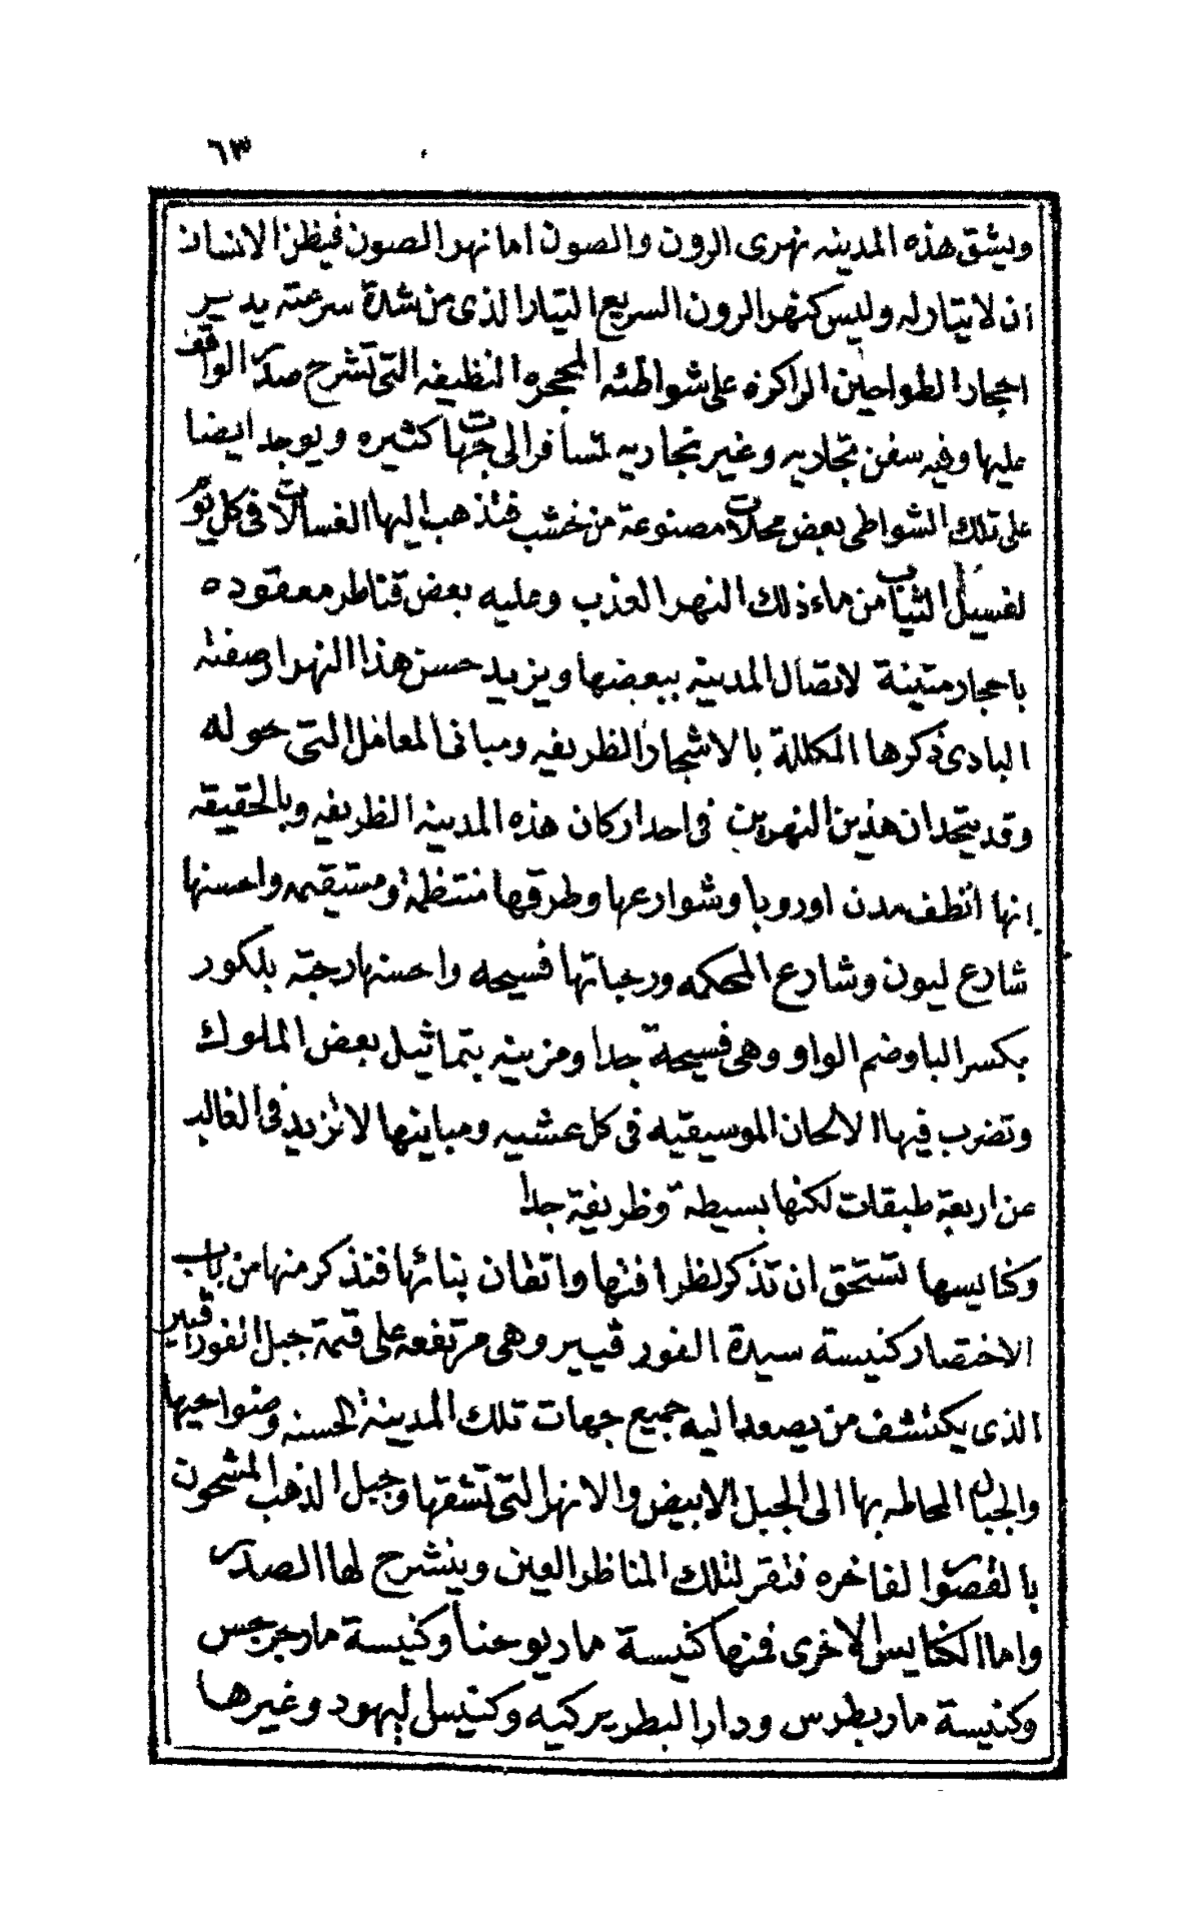 ٦٣
ويشق هذه المدينه نهرى الرون والصون اما نهر الصون فيظن الانسان
ان لا تيار له وليس كنهر الرون السريع التيار الذى من شدة سرعته يدير
احجار الطواحين الراكزه على شواطئه المحجره النظيفه التى تشرح صدر الواقف
عليها وفيه سفن تجاريه وغير تجاريه تسافر الى جهات كثيره ويوجد ايضا
على تلك الشواطى بعض محلات مصنوعة من خشب فتذهب اليها الغسالات فى كل يوم
لغسيل الثياب من ماء ذلك النهر العذب وعليه بعض قناطر معقوده
باحجار متينة لاتصال المدينه ببعضها ويزيد حسن هذا النهر ارصفته
البادى ذكرها المكللة بالاشجار الظريفه ومبانى المعامل التى حوله
وقد يتحد ان هذين النهرين فى احد اركان هذه المدينه الظريفه وبالحقيقه
انها انظف مدن اوروبا وشوارعها وطرقها منتظمة ومستقيمه واحسنها
شارع ليون وشارع المحكمه ورحباتها فسيحه واحسنها رحبته بلكور
بكسر البا وضم الواو وهى فسيحة جدا ومزينه بتماثيل بعض الملوك
وتضرب فيها الالحان الموسيقيه فى كل عشيه ومباينها لا تزيد فى الغالب
عن اربعة طبقات لكنها بسيطة وظريفة جدا
وكنايسها تستحق ان تذكر لظرافتها واتقان بنائها فتذكر منها من باب
الاختصار كنيسة سيدة الفور فيير وهى مرتفعة على قمة جبل الفور فيير
الذى يكتشف من يصعد اليه جميع جهات تلك المدينة الحسنه وضواحيها
والجبال المحاطه بها الى الجبل الابيض والانهر التى تشقها وجبل الذهب المشحون
بالقصور الفاخره فتقر لتلك المناظر العين وينشرح لها الصدر
واما الكنايس الاخرى فمنها كنيسة مار يوحنا وكنيسة مار جرجس
وكنيسة مار بطرس ودار البطريركيه وكنيس ليهود وغيرها